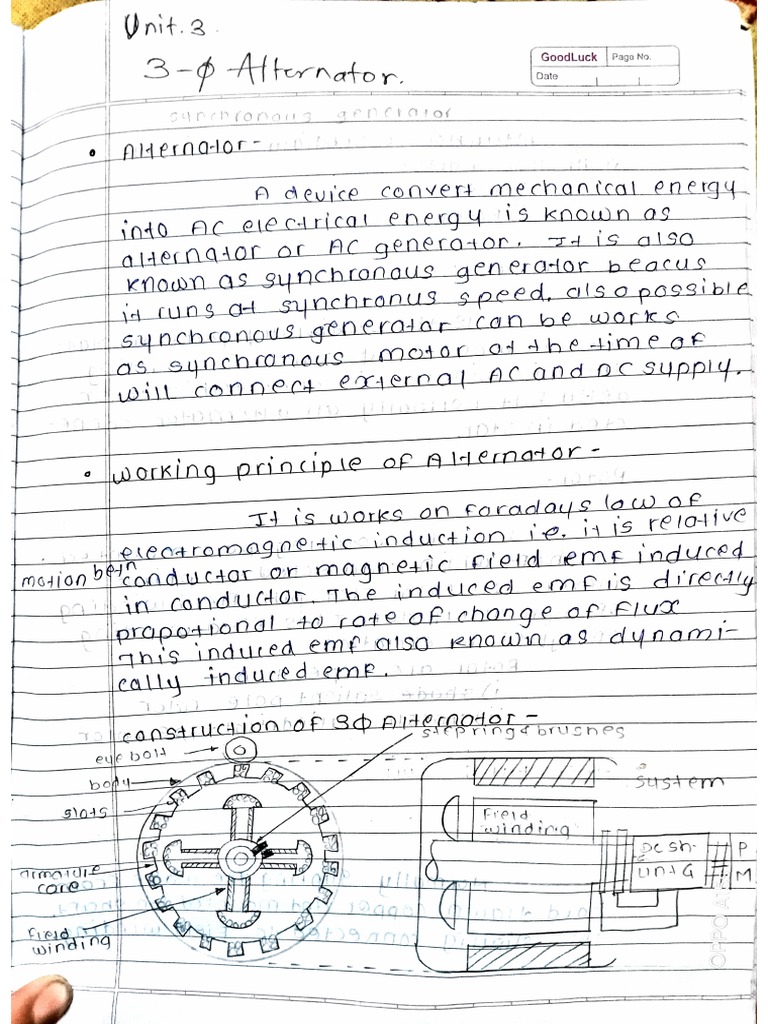 Unit. 3.
3-φ Alternator.
GoodLuck Page No.
Date
synchronous generator
• Alternator -
A device convert mechanical energy
into AC electrical energy is known as
alternator or AC generator. It is also
known as synchronous generator beacus
it runs at synchronus speed. also possible
synchronous generator can be works
as synchronous motor at the time of
will connect external AC and DC supply.
• Working principle of Alternator -
It is works on faradays law of
electromagnetic induction i.e. it is relative
motion betn conductor or magnetic field emf induced
in conductor. The induced emf is directly
propotional to rate of change of flux
This induced emf also known as dynami-
cally induced emf.
construction of 3φ Alternator -
slepring & brushes
eye bolt
body
slots
armature
core
Field
winding
system
Field
winding
DC sh-
unt G
P
M
OPPO A